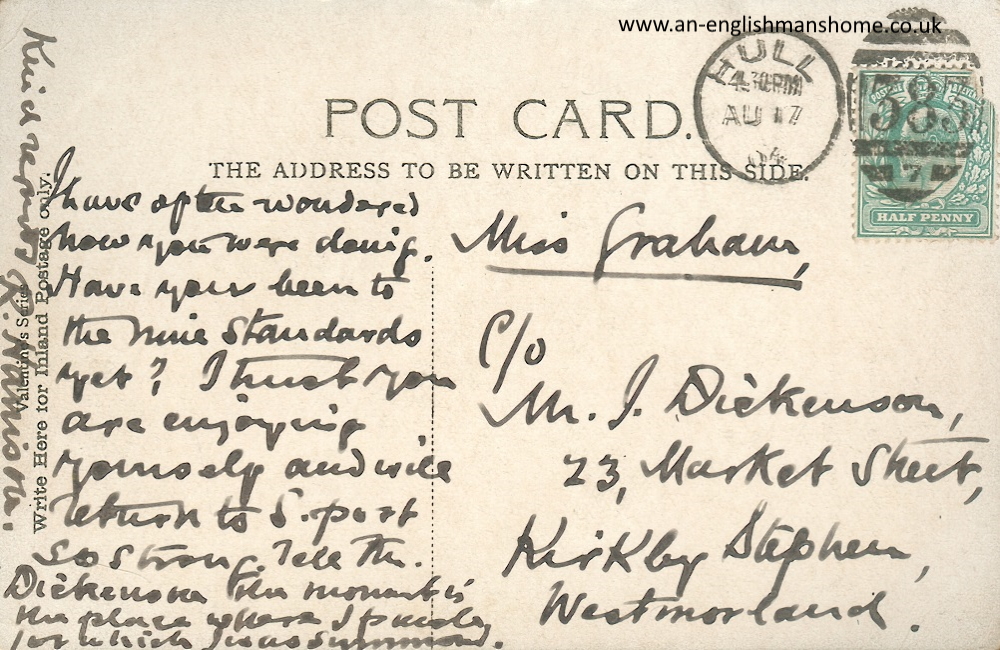 www.an-englishmanshome.co.uk
HULL
4.30PM
AU 17
04
383
7
POSTAGE
HALF PENNY
POST CARD.
THE ADDRESS TO BE WRITTEN ON THIS SIDE.
Valentine's Series
Write Here for Inland Postage only.
I have often wondered
how you were doing.
Have you been to
the nine Standards
yet? I trust you
are enjoying
yourself and will
return to S. port
so strong. Tell Mr.
Dickenson the monument is
the place where I
for which I was summoned.
Kind regards R. Harrison.
Miss Graham,
c/o
Mr. J. Dickenson,
23, Market Street,
Kirkby Stephen,
Westmorland.